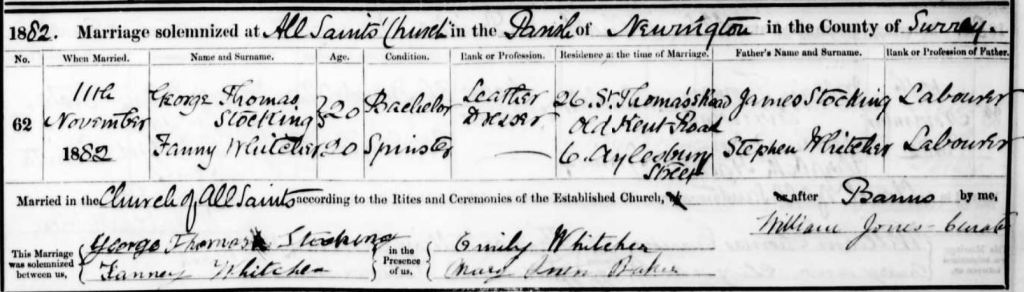 1882. Marriage solemnized at All Saints' Church in the Parish of Newington in the County of Surrey.
No. When Married. Name and Surname. Age. Condition. Rank or Profession. Residence at the time of Marriage. Father's Name and Surname. Rank or Profession of Father.
62 11th November 1882 George Thomas Stocking 20 Bachelor Leather Dresser 26 St Thomas's Road Old Kent Road James Stocking Labourer
Fanny Whitcher 20 Spinster — 6 Aylesbury Street Stephen Whitcher Labourer
Married in the Church of All Saints according to the Rites and Ceremonies of the Established Church, or after Banns by me,
William Jones Curate
This Marriage was solemnized between us, George Thomas Stocking in the Presence of us, Emily Whitcher
Fanney Whitcher Mary Baker